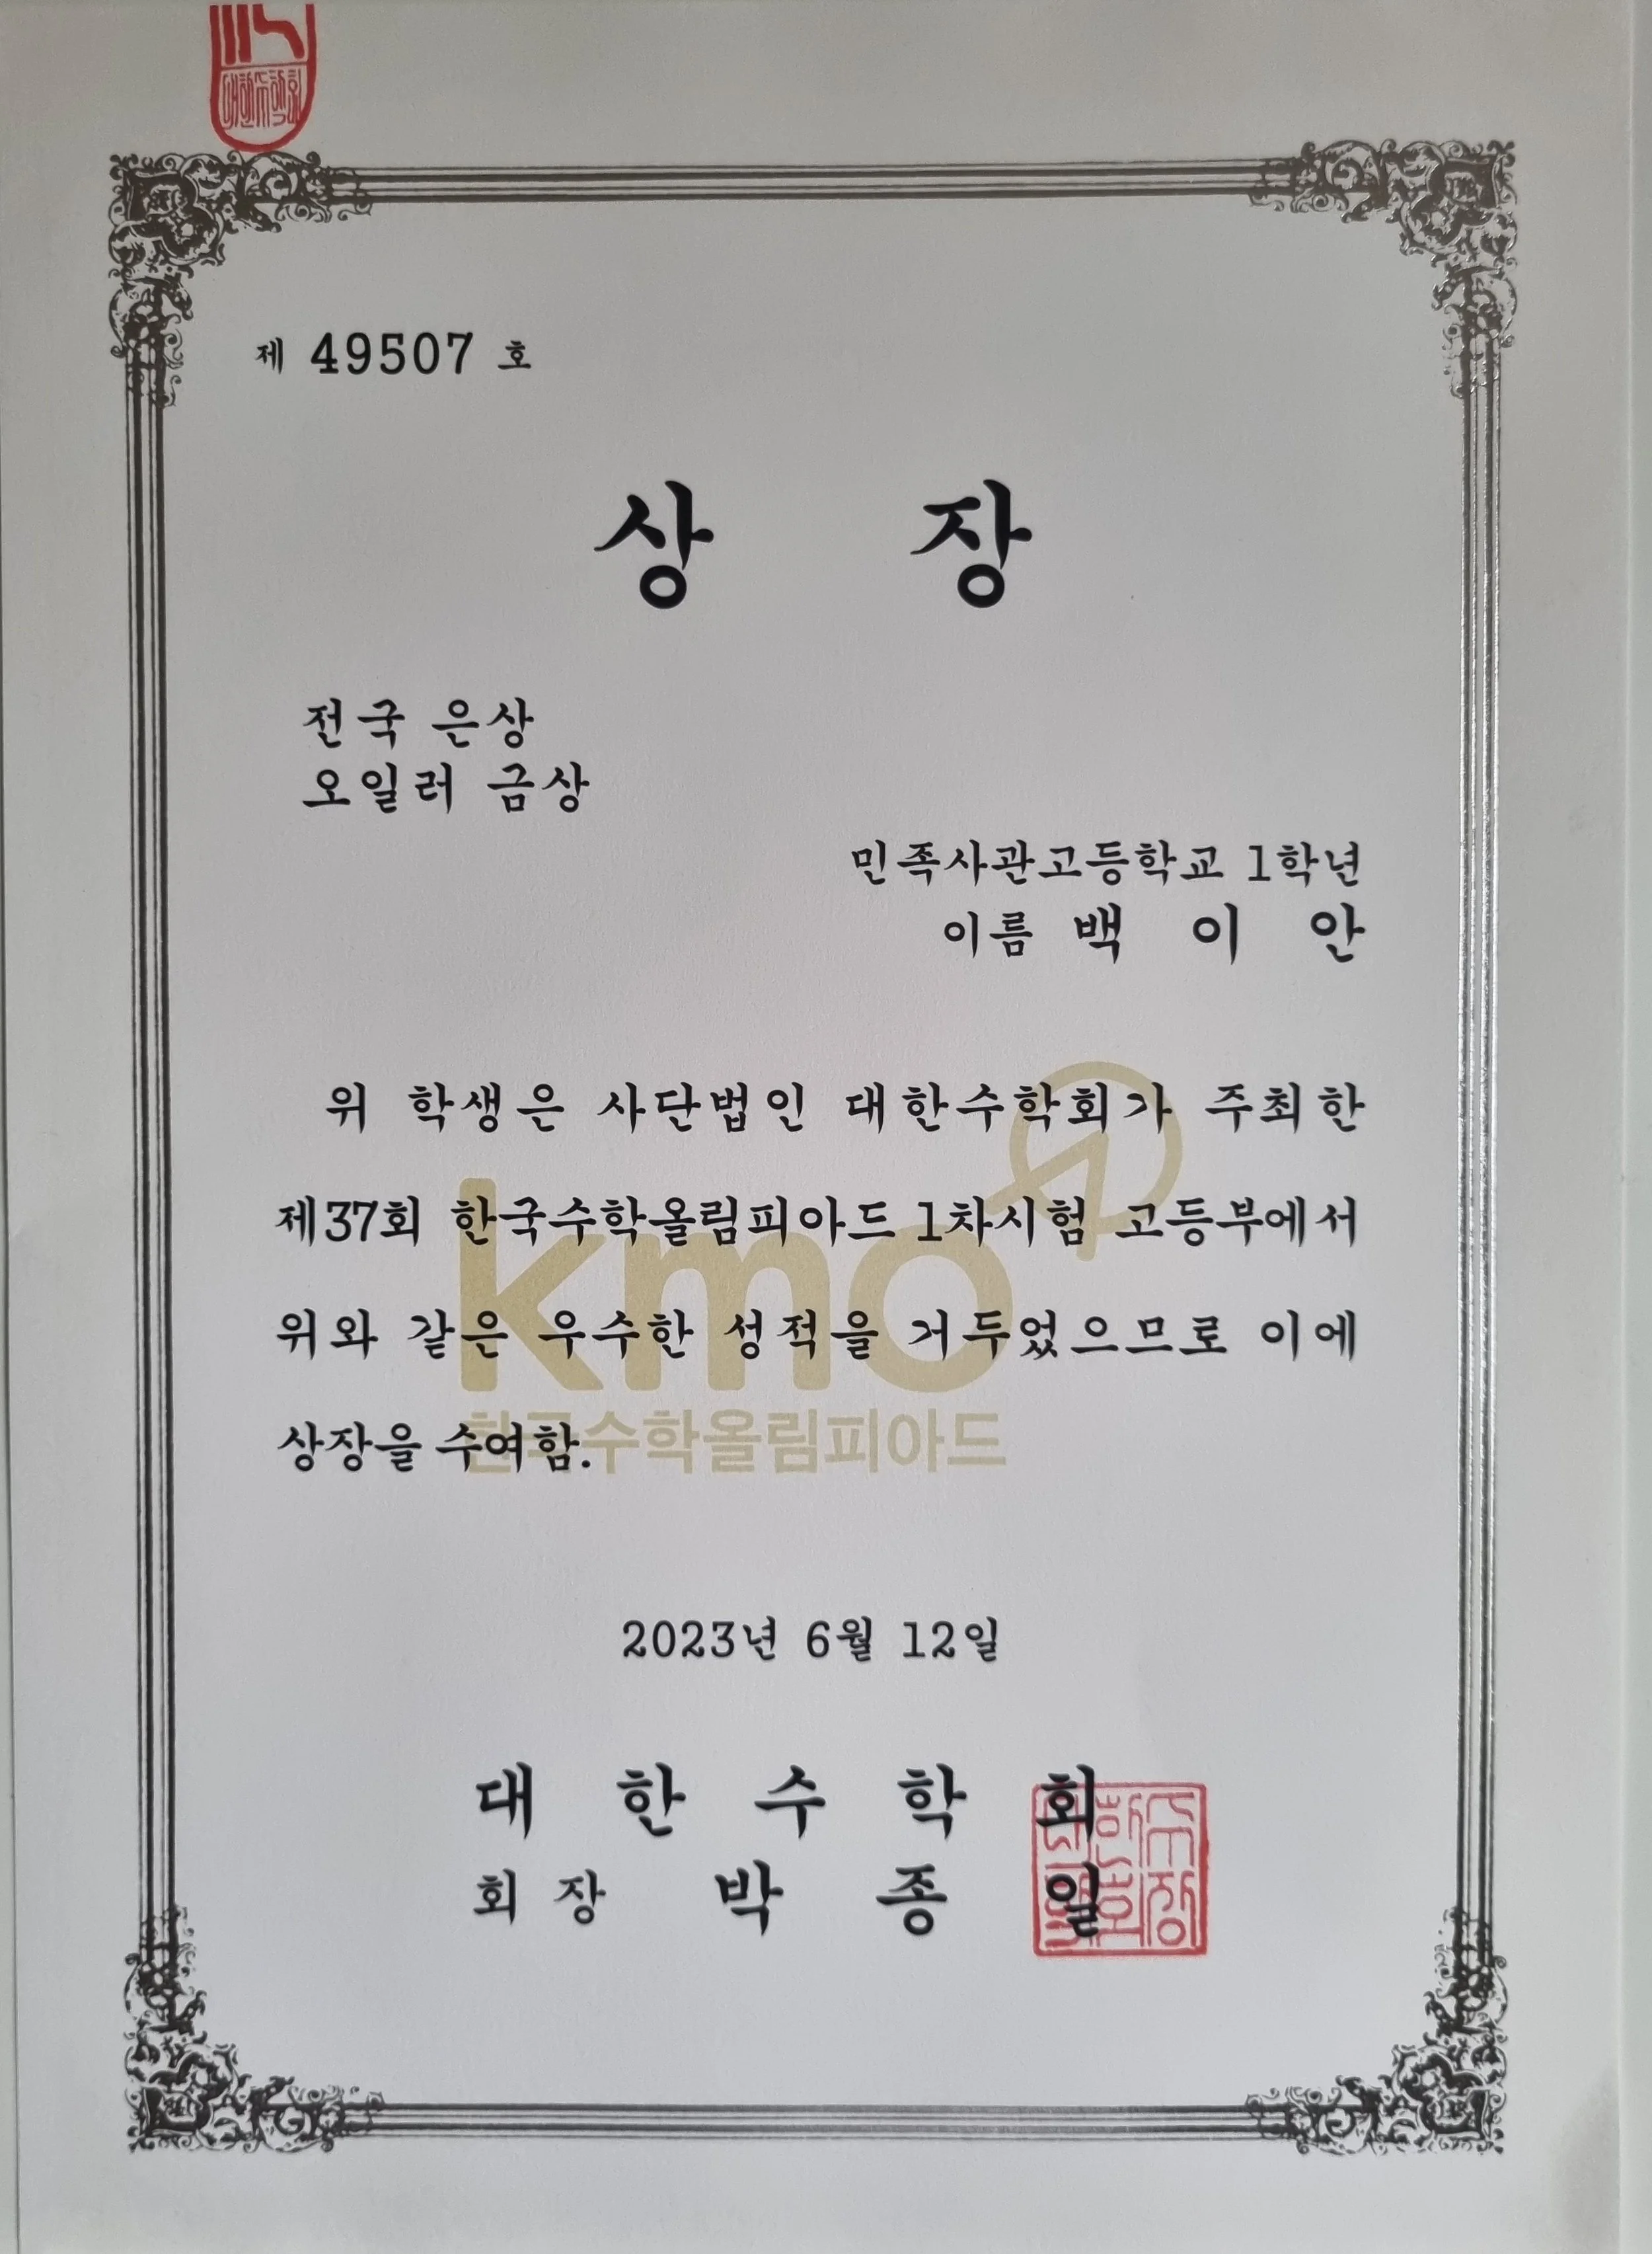 제 49507 호
상 장
전국 은상
오일러 금상
민족사관고등학교 1학년
이름 백 이 안
위 학생은 사단법인 대한수학회가 주최한
제37회 한국수학올림피아드 1차시험 고등부에서
위와 같은 우수한 성적을 거두었으므로 이에
상장을 수여함.
kmo
한국수학올림피아드
2023년 6월 12일
대 한 수 학 회
회 장 박 종 일